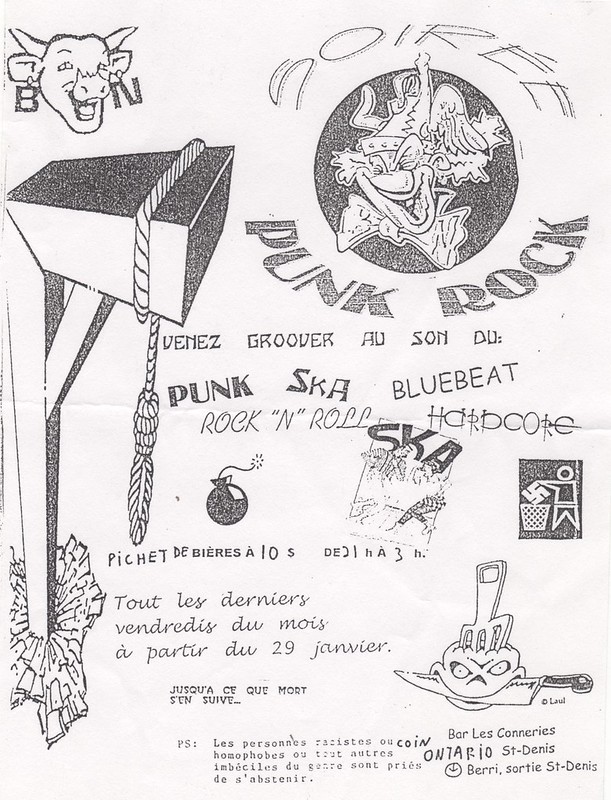 B N
SOIRÉE
PUNK ROCK
VENEZ GROOVER AU SON DU:
PUNK SKA BLUEBEAT
ROCK "N" ROLL HARDCORE
SKA
PICHET DE BIÈRES À 10 $ DE 21 h À 3 h.
Tout les derniers
vendredis du mois
à partir du 29 janvier.
JUSQU'A CE QUE MORT
S'EN SUIVE...
© Laul
PS: Les personnes racistes ou
homophobes ou tout autres
imbéciles du genre sont priés
de s'abstenir.
Bar Les Conneries
COIN ONTARIO St-Denis
Berri, sortie St-Denis